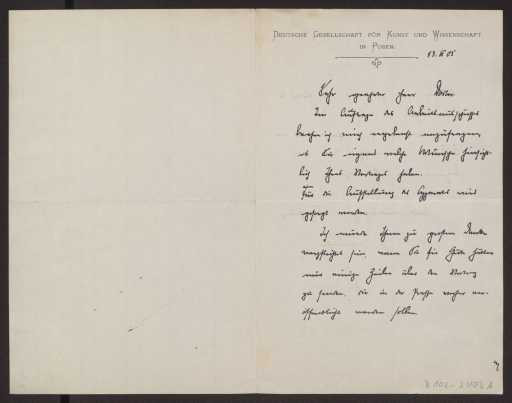 DEUTSCHE GESELLSCHAFT FÜR KUNST UND WISSENSCHAFT
IN POSEN.
Sehr geehrter Herr Doktor
Im Auftrage des Arbeitsausschusses
beehre ich mich ergebenst anzufragen,
ob Sie irgend welche Wünsche hinsicht-
lich Ihres Vortrages haben.
Für die Aufstellung des Apparates wird
gesorgt werden.
Ich würde Ihnen zu großem Danke
verpflichtet sein, wenn Sie die Güte hätten
mir einige Zeilen über den Vortrag
zu senden, die in der Presse vorher ver-
öffentlicht werden sollen.